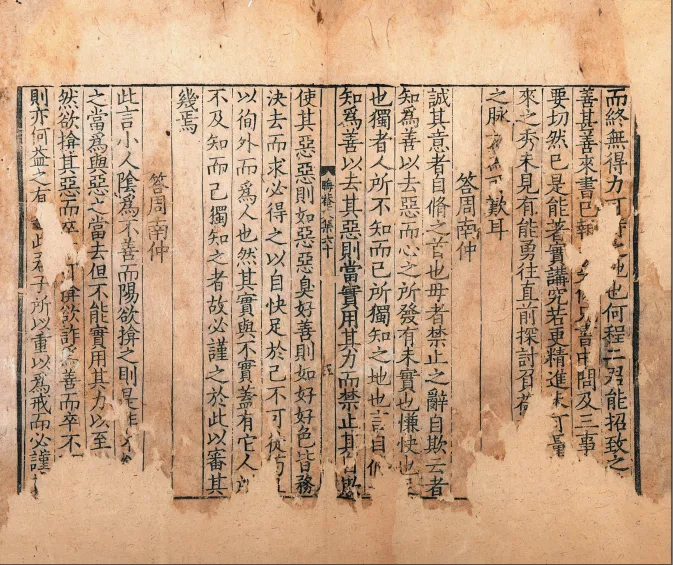 而終無得力可 地也何程二 能招致之
善甚善來書已報 書中問及三事
要切然已是能者實講究若更精進未可量
來之秀未見有能勇往直前探討負荷
之脉 歎耳
答周南仲
誠其意者自脩之首也毋者禁止之辭自欺云者
知為善以去惡而心之所發有未實也慊快也
也獨者人所不知而己所獨知之地也言自脩
知為善以去其惡則當實用其力而禁止其自欺
晦菴 集六十
使其惡惡則如惡惡臭好善則如好好色皆務
決去而求必得之以自快足於己不可徒苟
以徇外而為人也然其實與不實蓋有它人所
不及知而己獨知之者故必謹之於此以審其
幾焉
答周南仲
此言小人陰為不善而陽欲揜之則是非不
之當為與惡之當去但不能實用其力以至
然欲揜其惡而卒 可揜欲詐為善而卒不
則亦何益之有 此君子所以重以為戒而必謹